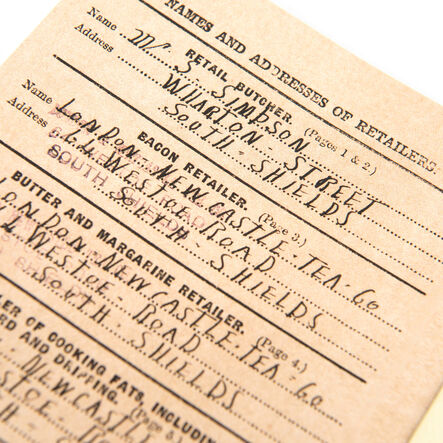 NAMES AND ADDRESSES OF RETAILERS.
RETAIL BUTCHER. (Pages 1 & 2.)
Name M/ S. SIMPSON
Address WHARTON - STREET
SOUTH - SHIELDS
BACON RETAILER. (Page 3.)
Name LONDON - NEWCASTLE - TEA - Co
Address WESTOE - ROAD
SOUTH - SHIELDS
BUTTER AND MARGARINE RETAILER. (Page 4.)
ONDON - NEWCASTLE - TEA - Co
WESTOE - ROAD
SOUTH - SHIELDS
LER OF COOKING FATS, INCLUDING
RD AND DRIPPING. (Page 5.)
NEWCASTLE